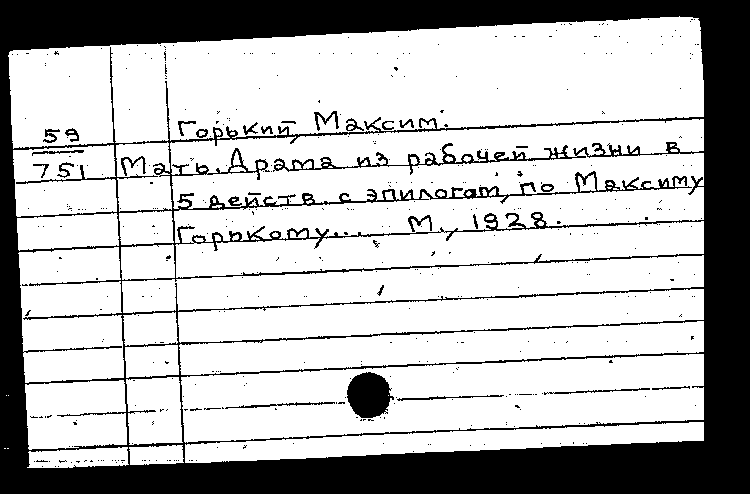 Горький, Максим.
59
751 Мать. Драма из рабочей жизни в
5 действ. с эпилогам, по Максиму
Горькому... М., 1928.